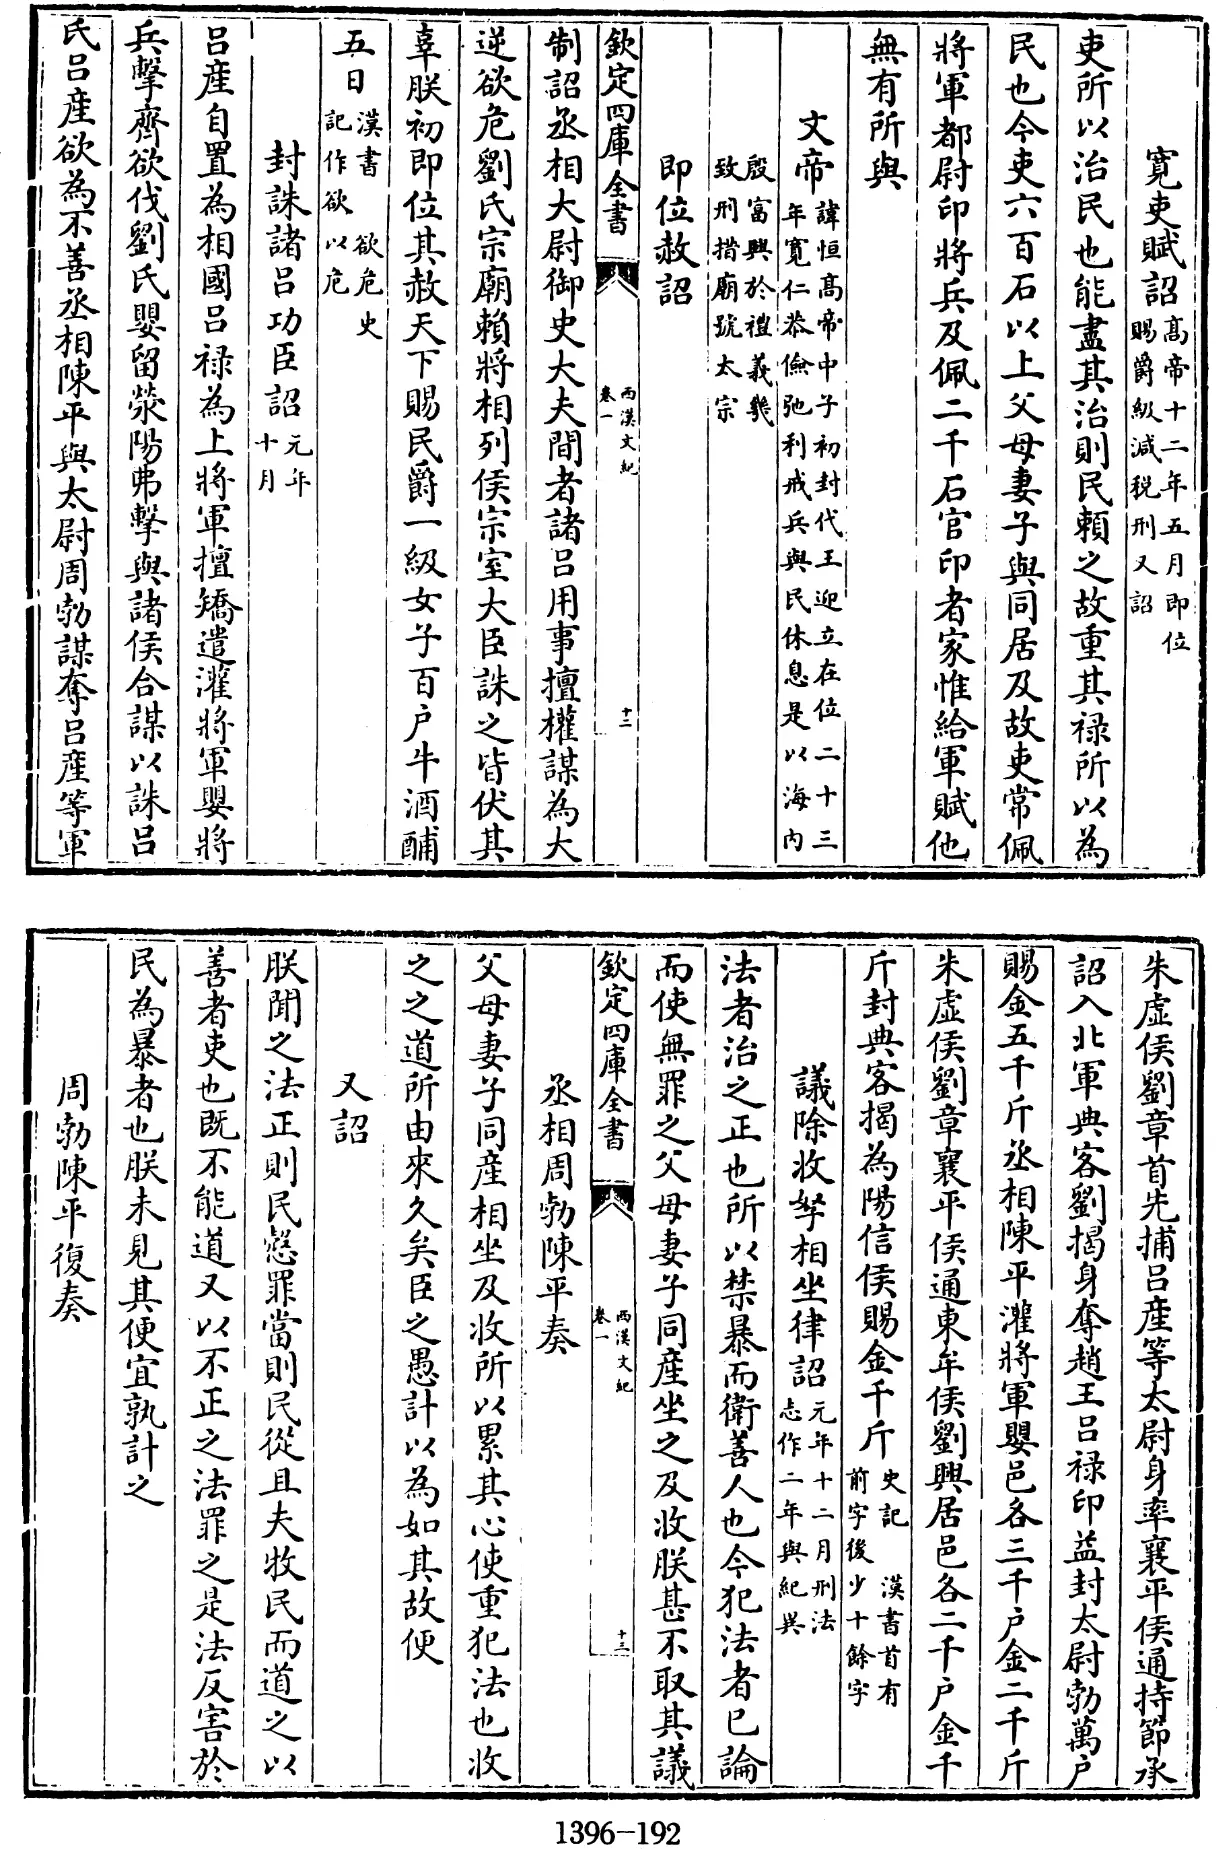 寛吏賦詔高帝十二年五月即位賜爵級減税刑又詔
吏所以治民也能盡其治則民賴之故重其禄所以為
民也今吏六百石以上父母妻子與同居及故吏常佩
將軍都尉印將兵及佩二千石官印者家惟給軍賦他
無有所與
文帝諱恒髙帝中子初封代王迎立在位二十三年寛仁恭儉弛利戒兵與民休息是以海内
殷富興於禮義幾致刑措廟號太宗
即位赦詔
欽定四庫全書 西漢文紀 卷一 十二
制詔丞相大尉御史大夫間者諸吕用事擅權謀為大
逆欲危劉氏宗廟賴將相列侯宗室大臣誅之皆伏其
辜朕初即位其赦天下賜民爵一級女子百户牛酒酺
五日漢書欲危史記作欲以危
封誅諸吕功臣詔元年十月
吕産自置為相國吕禄為上將軍擅矯遣灌將軍嬰將
兵擊齊欲伐劉氏嬰留滎陽弗擊與諸侯合謀以誅吕
氏吕産欲為不善丞相陳平與太尉周勃謀奪吕産等軍
朱虚侯劉章首先捕吕産等太尉身率襄平侯通持節承
詔入北軍典客劉揭身奪趙王吕禄印益封太尉勃萬户
賜金五千斤丞相陳平灌將軍嬰邑各三千户金二千斤
朱虚侯劉章襄平侯通東牟侯劉興居邑各二千户金千
斤封典客揭為陽信侯賜金千斤史記 漢書首有前字後少十餘字
議除收孥相坐律詔元年十二月刑法志作二年與紀異
法者治之正也所以禁暴而衛善人也今犯法者已論
而使無罪之父母妻子同産坐之及收朕甚不取其議
欽定四庫全書 西漢文紀 卷一 十三
丞相周勃陳平奏
父母妻子同産相坐及收所以累其心使重犯法也收
之之道所由來久矣臣之愚計以為如其故便
又詔
朕聞之法正則民慤罪當則民從且夫牧民而道之以
善者吏也既不能道又以不正之法罪之是法反害於
民為暴者也朕未見其便宜孰計之
周勃陳平復奏
1396-192